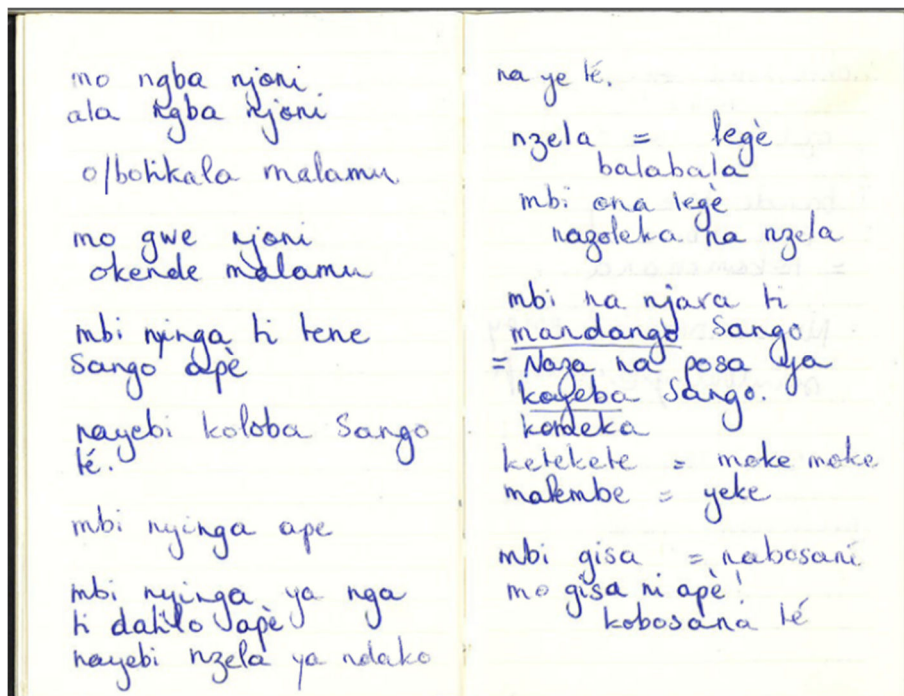 mo ngba njoni
ala ngba njoni
o/botikala malamu
mo gwe njoni
okende malamu
mbi nyinga ti tene
Sango apè
nayebi koloba Sango
té.
mbi nyinga ape
mbi nyinga ya nga
ti dahto apè
nayebi nzela ya ndako
na ye té.
nzela = legè
balabala
mbi ona legè
nazoleka na nzela
mbi na njara ti
mandango Sango
= Naza na posa ya
koyeba Sango.
kondeka
ketekete = moke moke
malembe = yeke
mbi gisa = nabosani
mo gisa ni apè!
kobosana té